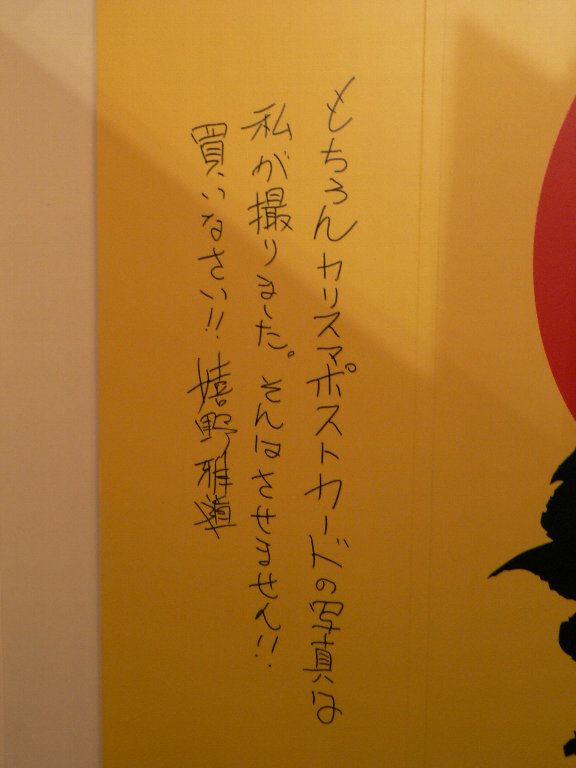 もちろんカリスマポストカードの写真は
私が撮りました。そんはさせません!!
買いなさい!! 嬉野雅道